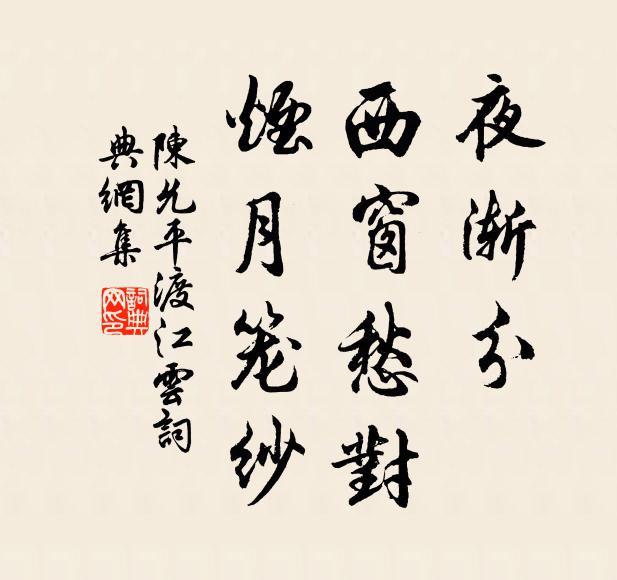 夜渐分
西窗愁對
煙月笼紗
陳允平渡江雲詞
典網集
詞典
网印